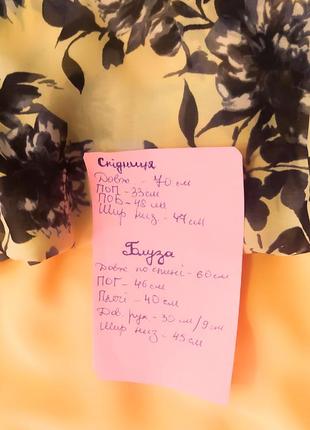 Спідниця
Довж - 70 см
ПОП - 33 см
ПОБ - 48 см
Шир низ. - 47 см
Блуза
Довж по спині - 60 см
ПОГ - 46 см
Плечі - 40 см
Дов. рук - 30 см/9 см
Шир низ - 45 см